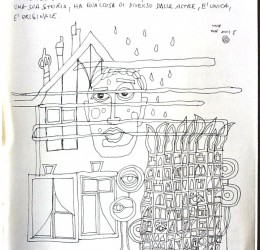 UNA SUA STORIA, HA QUALCOSA DI DIVERSO DALLE ALTRE, E' UNICA,
E' ORIGINALE